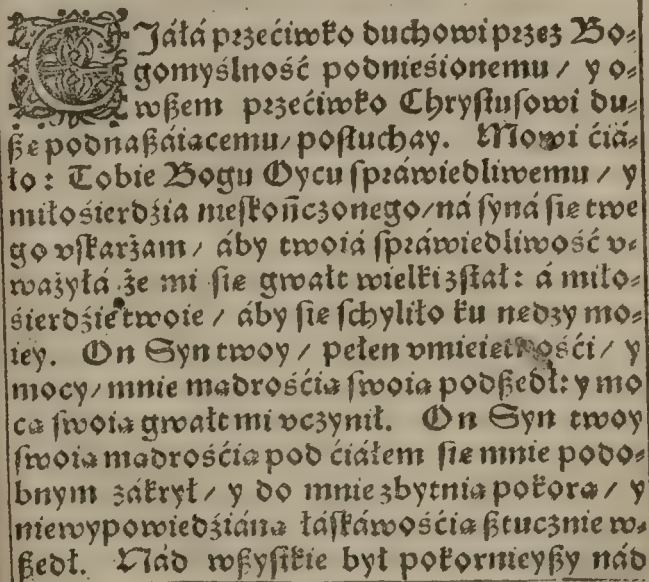 CJáłá przećiwko duchowi przez Bo⸗
gomyślność podnieśionemu / y o⸗
wßem przećiwko Chrystusowi du⸗
ße podnaßáiącemu / posłuchay. Mowi ćiá⸗
ło: Tobie Bogu Oycu spráwiedliwemu / y
miłośierdźia nieskończonego / ná syná się twe
go vskarżam / áby twoiá spráwiedliwość v⸗
ważyłá że mi się gwałt wielki zstał: á miło⸗
śierdźie twoie / áby się schyliło ku nędzy mo⸗
iey. On Syn twoy / pełen vmieiętności / y
mocy / mnie mądrośćią swoią podßedł: y mo
cą swoią gwałt mi vczynił. On Syn twoy
swoią mądrośćią pod ćiáłem się mnie podo⸗
bnym zákrył / y do mnie zbytnią pokorą / y
niewypowiedźiáną łáskáwośćią ßtucznie w⸗
ßedł. Nád wßystkie był pokornieyßy nád